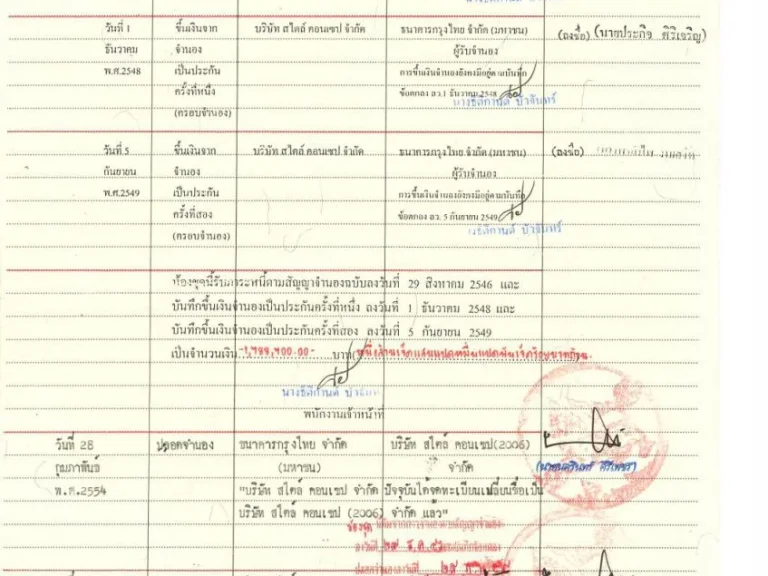 วันที่ 1 ขึ้นเงินจาก บริษัท สไตล์ คอนเซป จำกัด ธนาคารกรุงไทย จำกัด (มหาชน) (ลงชื่อ) (นายประกิจ ศิริเจริญ)
ธันวาคม จำนอง ผู้รับจำนอง
พ.ศ.2548 เป็นประกัน การขึ้นเงินจำนองยังคงมีอยู่ตามบันทึก
ครั้งที่หนึ่ง ข้อตกลง ลว.1 ธันวาคม 2548
(ครอบจำนอง) นางธิติกานต์ บัวจันทร์
วันที่ 5 ขึ้นเงินจาก บริษัท สไตล์ คอนเซป จำกัด ธนาคารกรุงไทย จำกัด (มหาชน) (ลงชื่อ)
กันยายน จำนอง ผู้รับจำนอง
พ.ศ.2549 เป็นประกัน การขึ้นเงินจำนองยังคงมีอยู่ตามบันทึก
ครั้งที่สอง ข้อตกลง ลว. 5 กันยายน 2549
(ครอบจำนอง) นางธิติกานต์ บัวจันทร์
ห้องชุดนี้รับภาระหนี้ตามสัญญาจำนองฉบับลงวันที่ 29 สิงหาคม 2546 และ
บันทึกขึ้นเงินจำนองเป็นประกันครั้งที่หนึ่ง ลงวันที่ 1 ธันวาคม 2548 และ
บันทึกขึ้นเงินจำนองเป็นประกันครั้งที่สอง ลงวันที่ 5 กันยายน 2549
เป็นจำนวนเงิน -1,788,700.00- บาท (หนึ่งล้านเจ็ดแสนแปดหมื่นแปดพันเจ็ดร้อยบาทถ้วน
นางธิติกานต์ บัวจันทร์
พนักงานเจ้าหน้าที่
วันที่ 28 ปลอดจำนอง ธนาคารกรุงไทย จำกัด บริษัท สไตล์ คอนเซป(2006)
กุมภาพันธ์ (มหาชน) จำกัด
พ.ศ.2554 "บริษัท สไตล์ คอนเซป จำกัด ปัจจุบันได้จดทะเบียนเปลี่ยนชื่อเป็น
บริษัท สไตล์ คอนเซป (2006) จำกัด แล้ว"
ห้องชุด
ลงวันที่